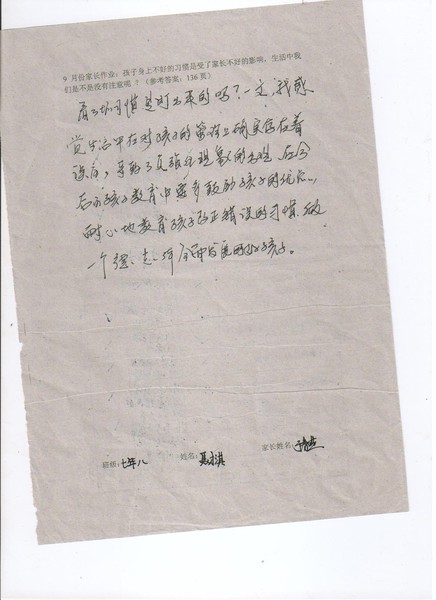 9 月份家长作业：孩子身上不好的习惯是受了家长不好的影响，生活中我
们是不是没有注意呢？（参考答案：136 页）
看了坏习惯是打出来的吗？一文，我感
觉生活中在对孩子的管教上确实存在着
误区，导致了现象的出现 在今
后的孩子教育中要多鼓励孩子的优点，
耐心地教育孩子改正错误的习惯 做
一个 全面发展的好孩子。
班级：七年八 姓名： 家长姓名：